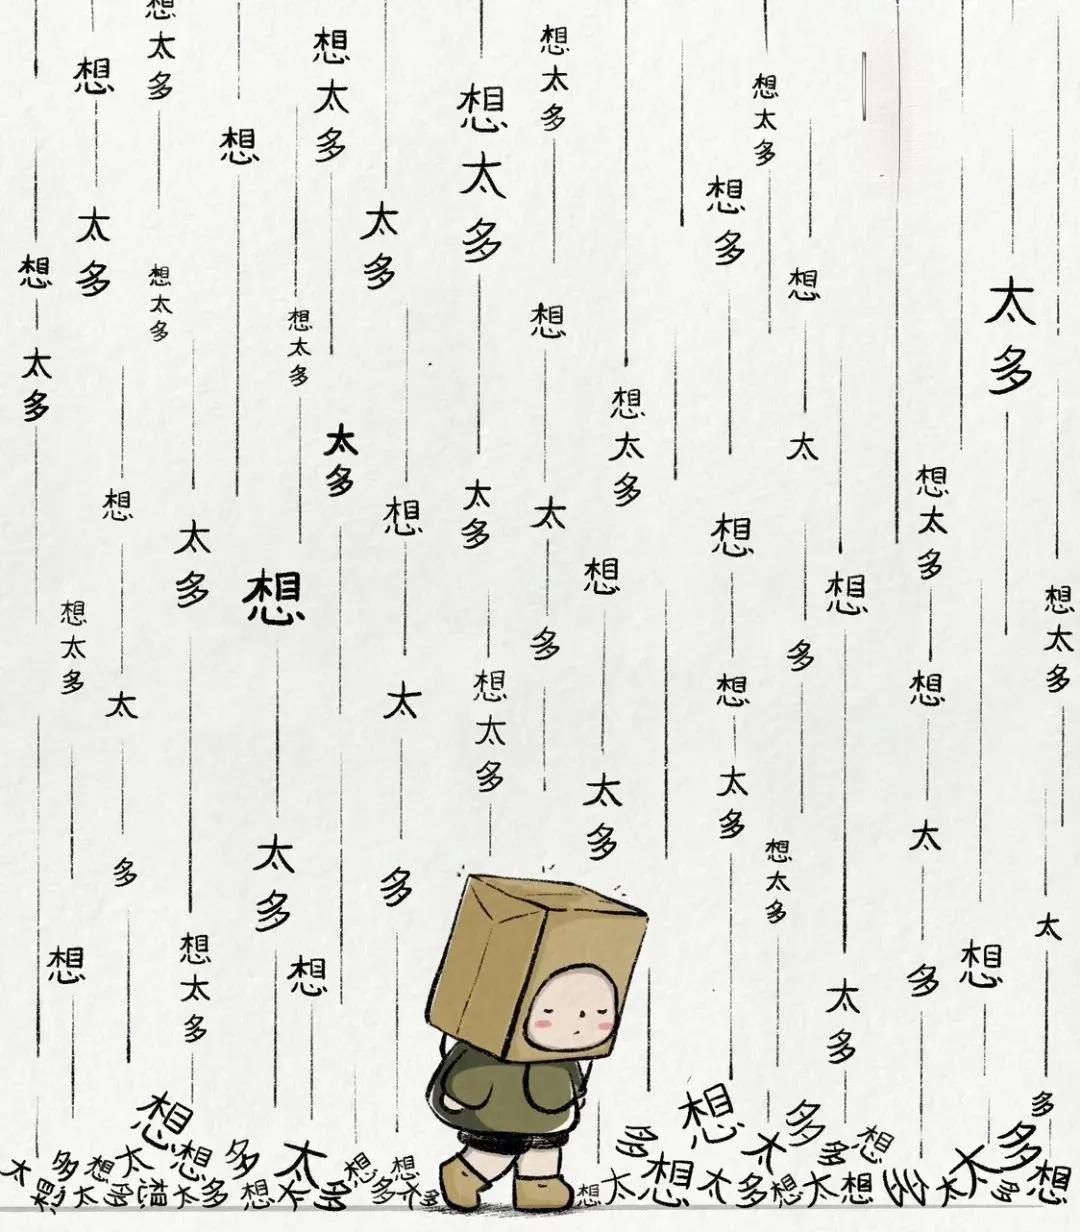 想太多
想太多
想太多
想
想太多
想太多
想
想多
太多
太多
想
想太多
想
太多
想太多
想
太多
想太多
太多
太
想太多
太多
想
太
想
想
太多
想
想
想
想太多
想太多
多
多
想太多
想
想
太
太
太多
太多
太
想太多
太多
多
多
太
想太多
想
想
想
多
太多
多
想
想
多
太多想太想多太想想
多太多想太多
想太多想太多想太多多太多
想太想太多想太想多太多想